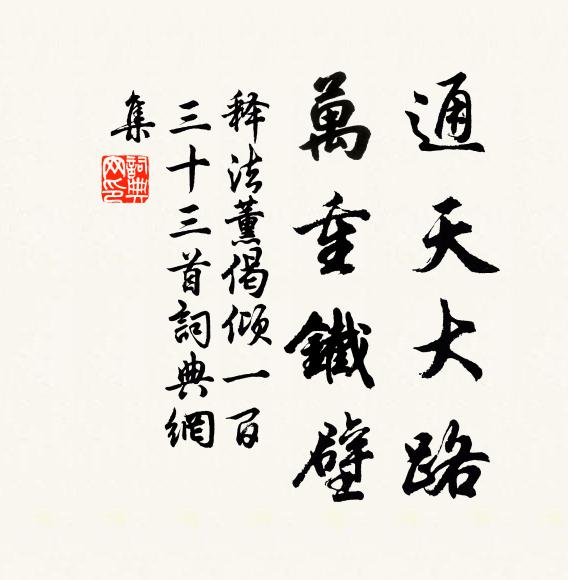 通天大路
萬重鐵壁
释法薰偈倾一百
三十三首詞典網
集
詞典
网印